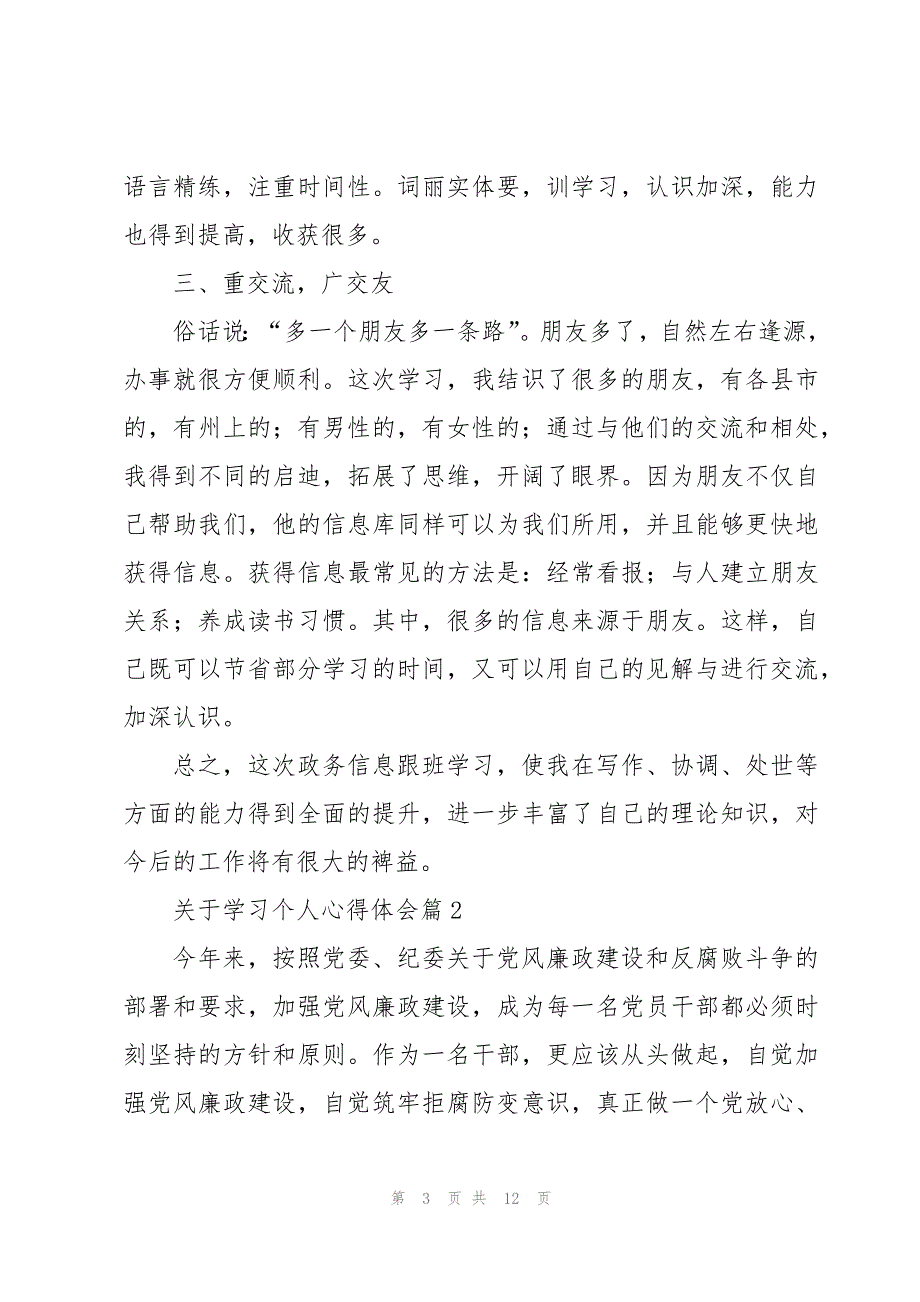 语言精练，注重时间性。词丽实体要，训学习，认识加深，能力
也得到提高，收获很多。
三、重交流，广交友
俗话说：“多一个朋友多一条路”。朋友多了，自然左右逢源，
办事就很方便顺利。这次学习，我结识了很多的朋友，有各县市
的，有州上的；有男性的，有女性的；通过与他们的交流和相处，
我得到不同的启迪，拓展了思维，开阔了眼界。因为朋友不仅自
己帮助我们，他的信息库同样可以为我们所用，并且能够更快地
获得信息。获得信息最常见的方法是：经常看报；与人建立朋友
关系；养成读书习惯。其中，很多的信息来源于朋友。这样，自
己既可以节省部分学习的时间，又可以用自己的见解与进行交流，
加深认识。
总之，这次政务信息跟班学习，使我在写作、协调、处世等
方面的能力得到全面的提升，进一步丰富了自己的理论知识，对
今后的工作将有很大的裨益。
关于学习个人心得体会篇2
今年来，按照党委、纪委关于党风廉政建设和反腐败斗争的
部署和要求，加强党风廉政建设，成为每一名党员干部都必须时
刻坚持的方针和原则。作为一名干部，更应该从头做起，自觉加
强党风廉政建设，自觉筑牢拒腐防变意识，真正做一个党放心、
第 3 页 共 12 页